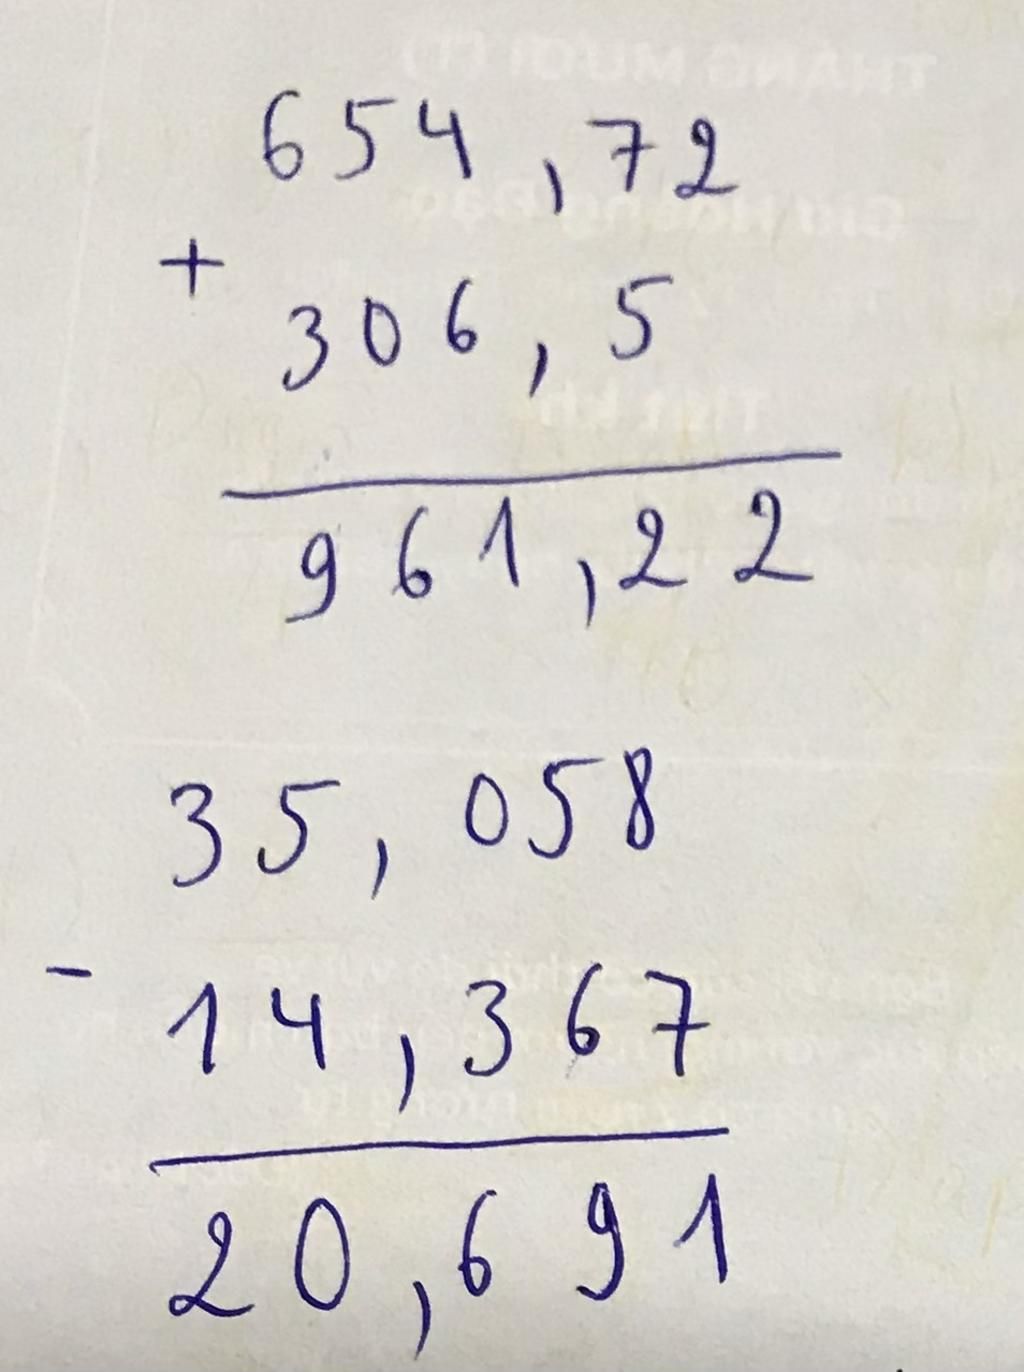 654,72
+
306,5
961,22
35,058
-
14,367
20,691